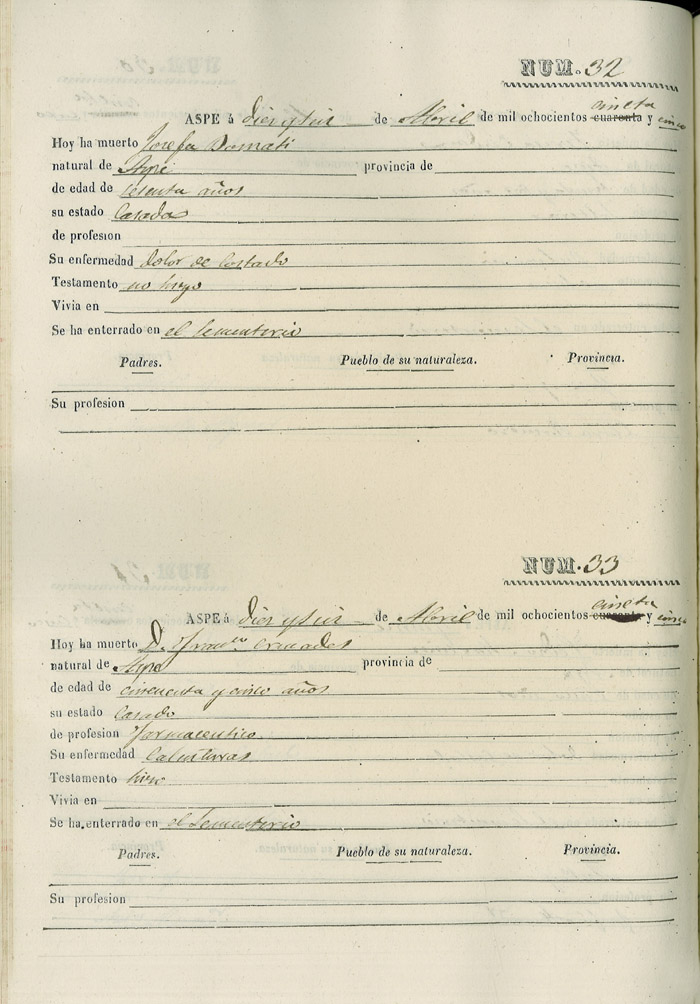 NUM. 32
cincta
ASPE á dies y seis de Abril de mil ochocientos cuarenta y cinco
Hoy ha muerto Josefa
natural de Aspe provincia de
de edad de sesenta años
su estado Casada
de profesion
Su enfermedad dolor de Costado
Testamento no hizo
Vivia en
Se ha enterrado en el Sementerio
Padres. Pueblo de su naturaleza. Provincia.
Su profesion
NUM. 33
cincta
ASPE á dies y seis de Abril de mil ochocientos cuarenta y cinco
Hoy ha muerto D. Cremades
natural de Aspe provincia de
de edad de cincuenta y cinco años
su estado Casado
de profesion Farmaceutico
Su enfermedad Calenturas
Testamento hizo
Vivia en
Se ha enterrado en el Sementerio
Padres. Pueblo de su naturaleza. Provincia.
Su profesion